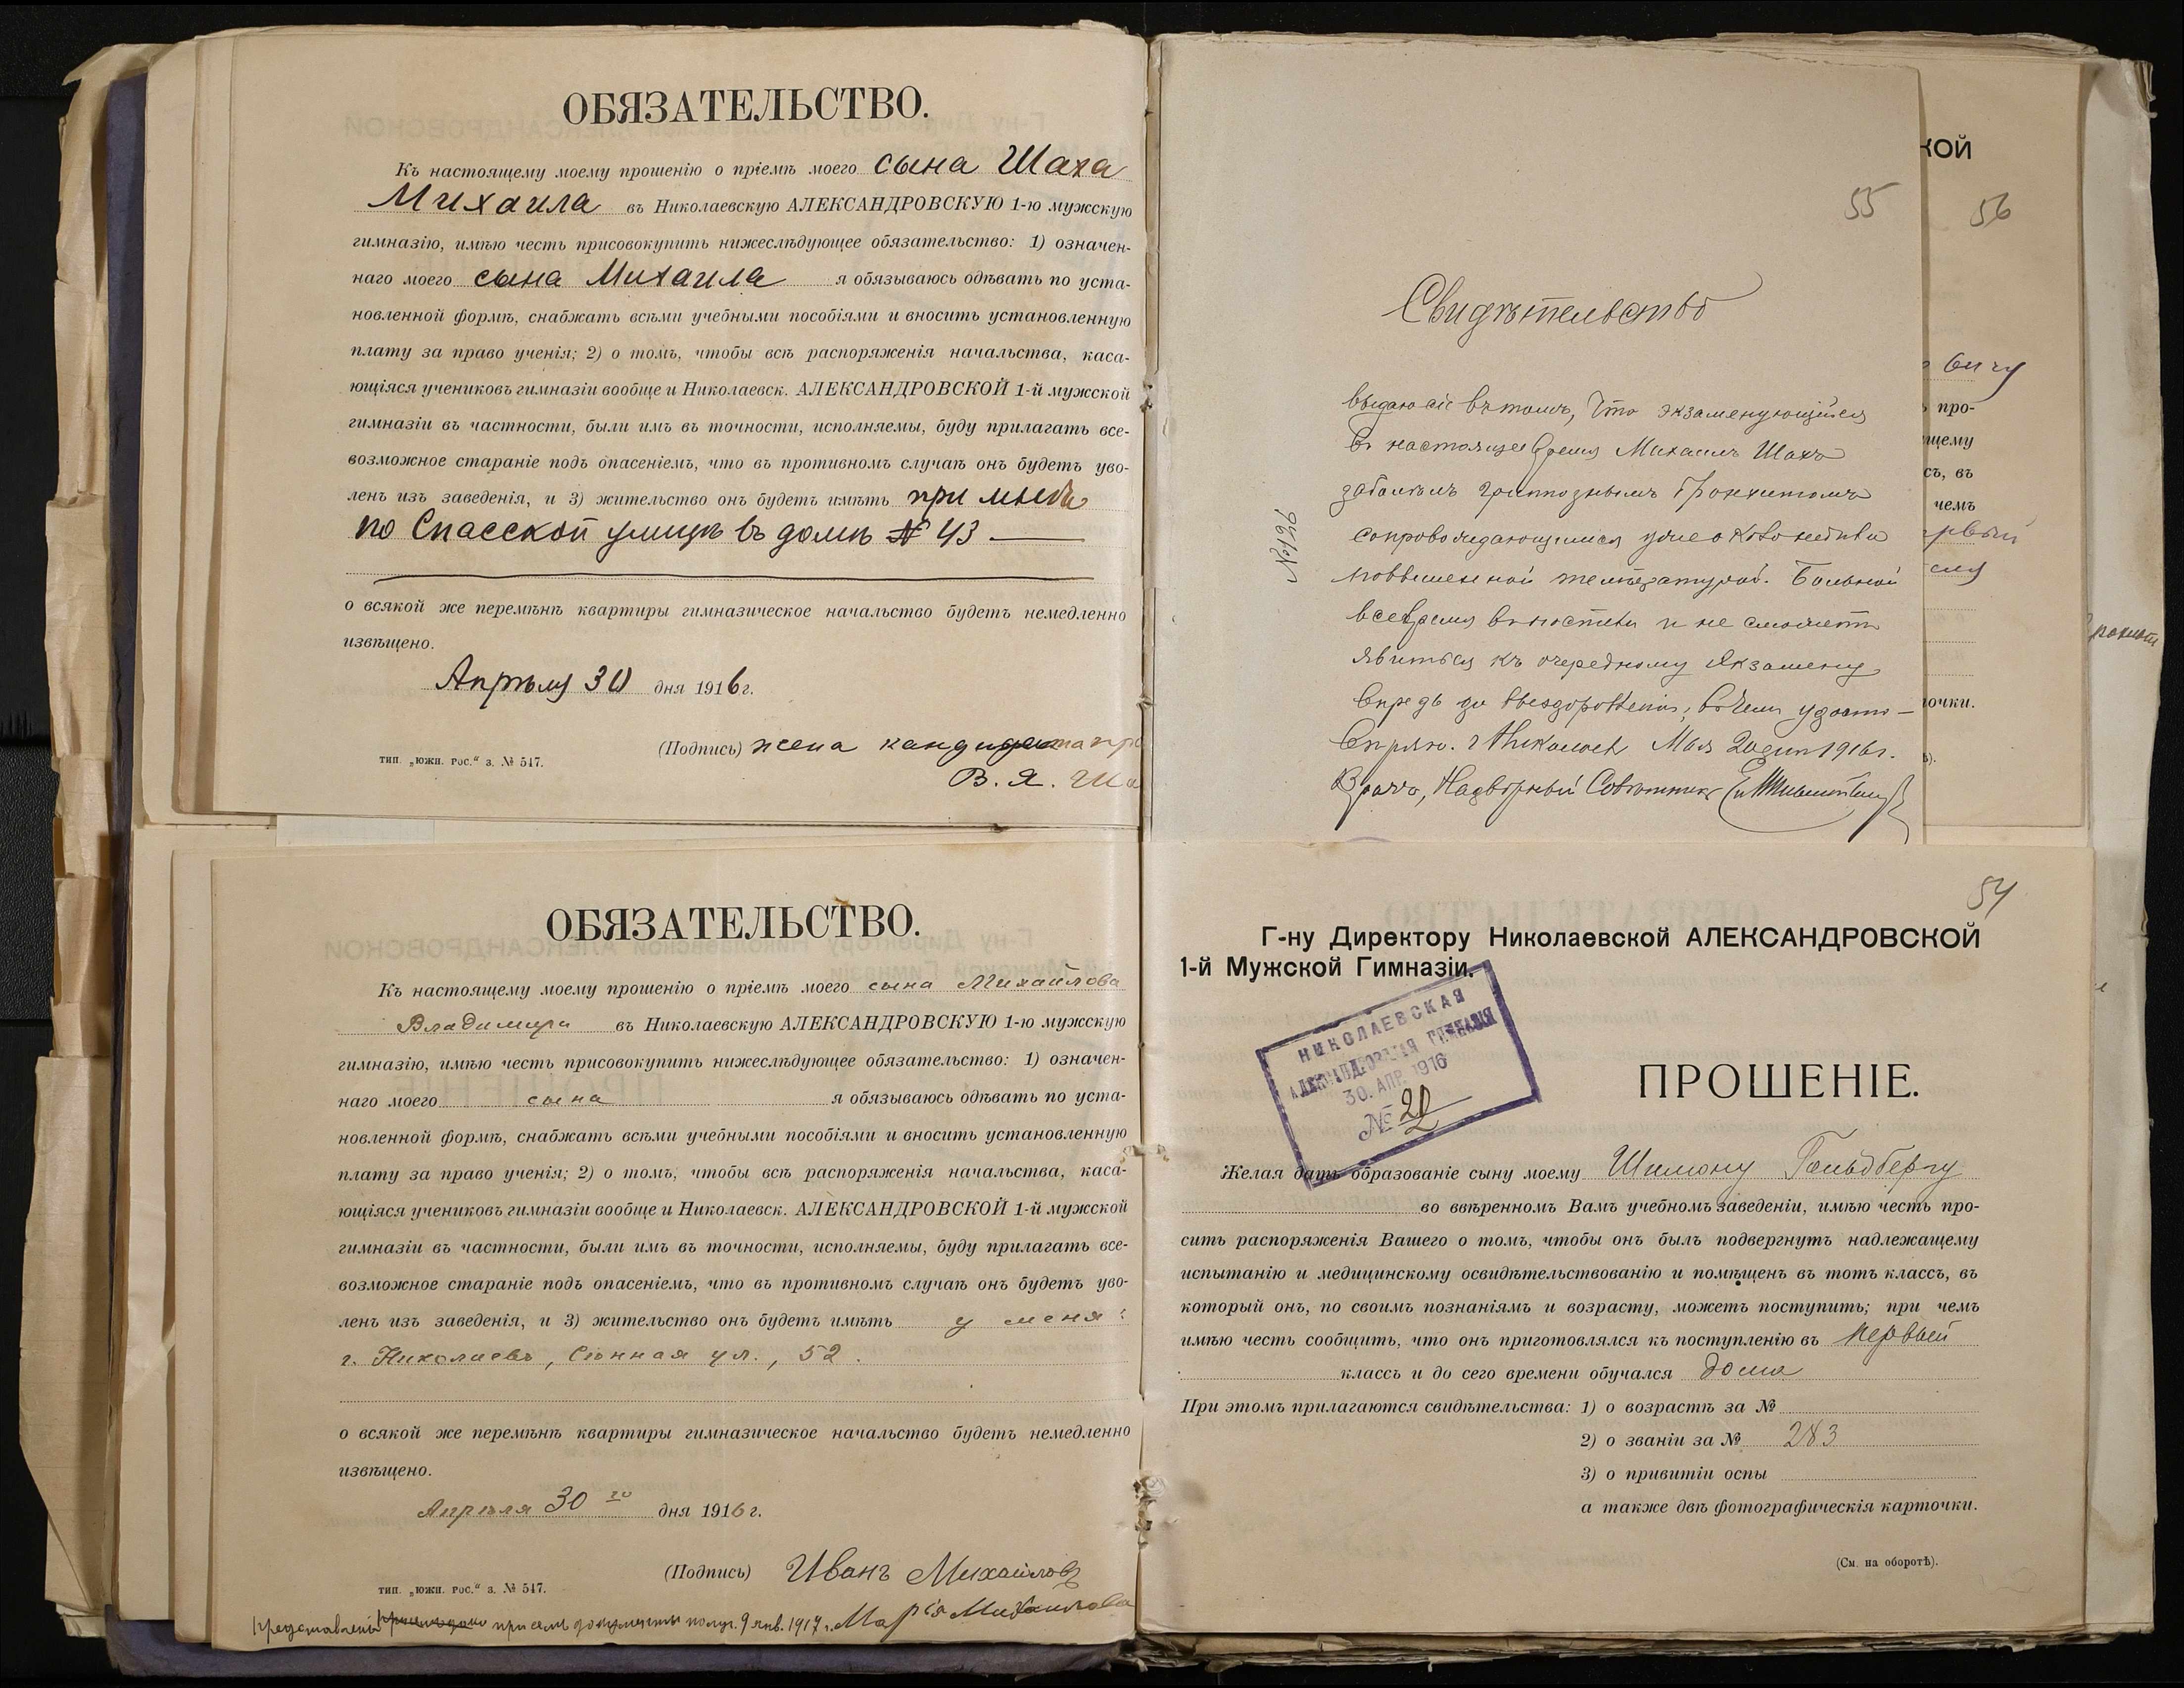 ОБЯЗАТЕЛЬСТВО.
Къ настоящему моему прошенію о пріемѣ моего сына Шаха
Михаила въ Николаевскую АЛЕКСАНДРОВСКУЮ 1-ю мужскую
гимназію, имѣю честь присовокупить нижеслѣдующее обязательство: 1) означен-
наго моего сына Михаила я обязываюсь одѣвать по уста-
новленной формѣ, снабжать всѣми учебными пособіями и вносить установленную
плату за право ученія; 2) о томъ, чтобы всѣ распоряженія начальства, каса-
ющіяся учениковъ гимназіи вообще и Николаевск. АЛЕКСАНДРОВСКОЙ 1-й мужской
гимназіи въ частности, были имъ въ точности, исполняемы, буду прилагать все-
возможное стараніе подъ опасеніемъ, что въ противномъ случаѣ онъ будетъ уво-
ленъ изъ заведенія, и 3) жительство онъ будетъ имѣть при мнѣ
по Спасской улицѣ въ домѣ № 43 —
о всякой же перемѣнѣ квартиры гимназическое начальство будетъ немедленно
извѣщено.
Апрѣля 30 дня 1916 г.
(Подпись) жена кандидата пр
тип. „южн. рос.“ з. № 547.
В. Я. Ша
КОЙ
55
56
Свидѣтельство
вичу
выдаю сіе въ томъ, что экзаменующійся
про-
въ настоящее время Михаилъ Шахъ
щему
заболѣлъ гриппознымъ бронхитомъ
сь, въ
чемъ
сопровождающимся
рвый
№ 196
повышенной температурой. Больной
все время въ постели и не сможетъ
явиться къ очередному экзамену
впредь до выздоровленія, въ чемъ удосто-
очки.
вѣряю. г. Николаевъ Мая 20 дня 1916 г.
Врачъ, Надворный Совѣтникъ
ОБЯЗАТЕЛЬСТВО.
Къ настоящему моему прошенію о пріемѣ моего сына Михайлова
Владимира въ Николаевскую АЛЕКСАНДРОВСКУЮ 1-ю мужскую
гимназію, имѣю честь присовокупить нижеслѣдующее обязательство: 1) означен-
наго моего сына я обязываюсь одѣвать по уста-
новленной формѣ, снабжать всѣми учебными пособіями и вносить установленную
плату за право ученія; 2) о томъ, чтобы всѣ распоряженія начальства, каса-
ющіяся учениковъ гимназіи вообще и Николаевск. АЛЕКСАНДРОВСКОЙ 1-й мужской
гимназіи въ частности, были имъ въ точности, исполняемы, буду прилагать все-
возможное стараніе подъ опасеніемъ, что въ противномъ случаѣ онъ будетъ уво-
ленъ изъ заведенія, и 3) жительство онъ будетъ имѣть у меня:
г. Николаевъ, Сѣнная ул., 52.
о всякой же перемѣнѣ квартиры гимназическое начальство будетъ немедленно
извѣщено.
Апрѣля 30 го дня 1916 г.
(Подпись) Иванъ Михайловъ
тип. „южн. рос.“ з. № 547.
при семъ документы получ. 9 янв. 1917 г. Марія Михайлова
54
Г-ну Директору Николаевской АЛЕКСАНДРОВСКОЙ
1-й Мужской Гимназіи.
НИКОЛАЕВСКАЯ
АЛЕКСАНДРОВСКАЯ ГИМНАЗІЯ
30. АПР. 1916
№ 20
ПРОШЕНІЕ.
Желая дать образованіе сыну моему Шимону Гольдбергу
во ввѣренномъ Вамъ учебномъ заведеніи, имѣю честь про-
сить распоряженія Вашего о томъ, чтобы онъ былъ подвергнутъ надлежащему
испытанію и медицинскому освидѣтельствованію и помѣщенъ въ тотъ классъ, въ
который онъ, по своимъ познаніямъ и возрасту, можетъ поступить; при чемъ
имѣю честь сообщить, что онъ приготовлялся къ поступленію въ первый
классъ и до сего времени обучался дома
При этомъ прилагаются свидѣтельства: 1) о возрастѣ за №
2) о званіи за № 283
3) о привитіи оспы
а также двѣ фотографическія карточки.
(См. на оборотѣ).